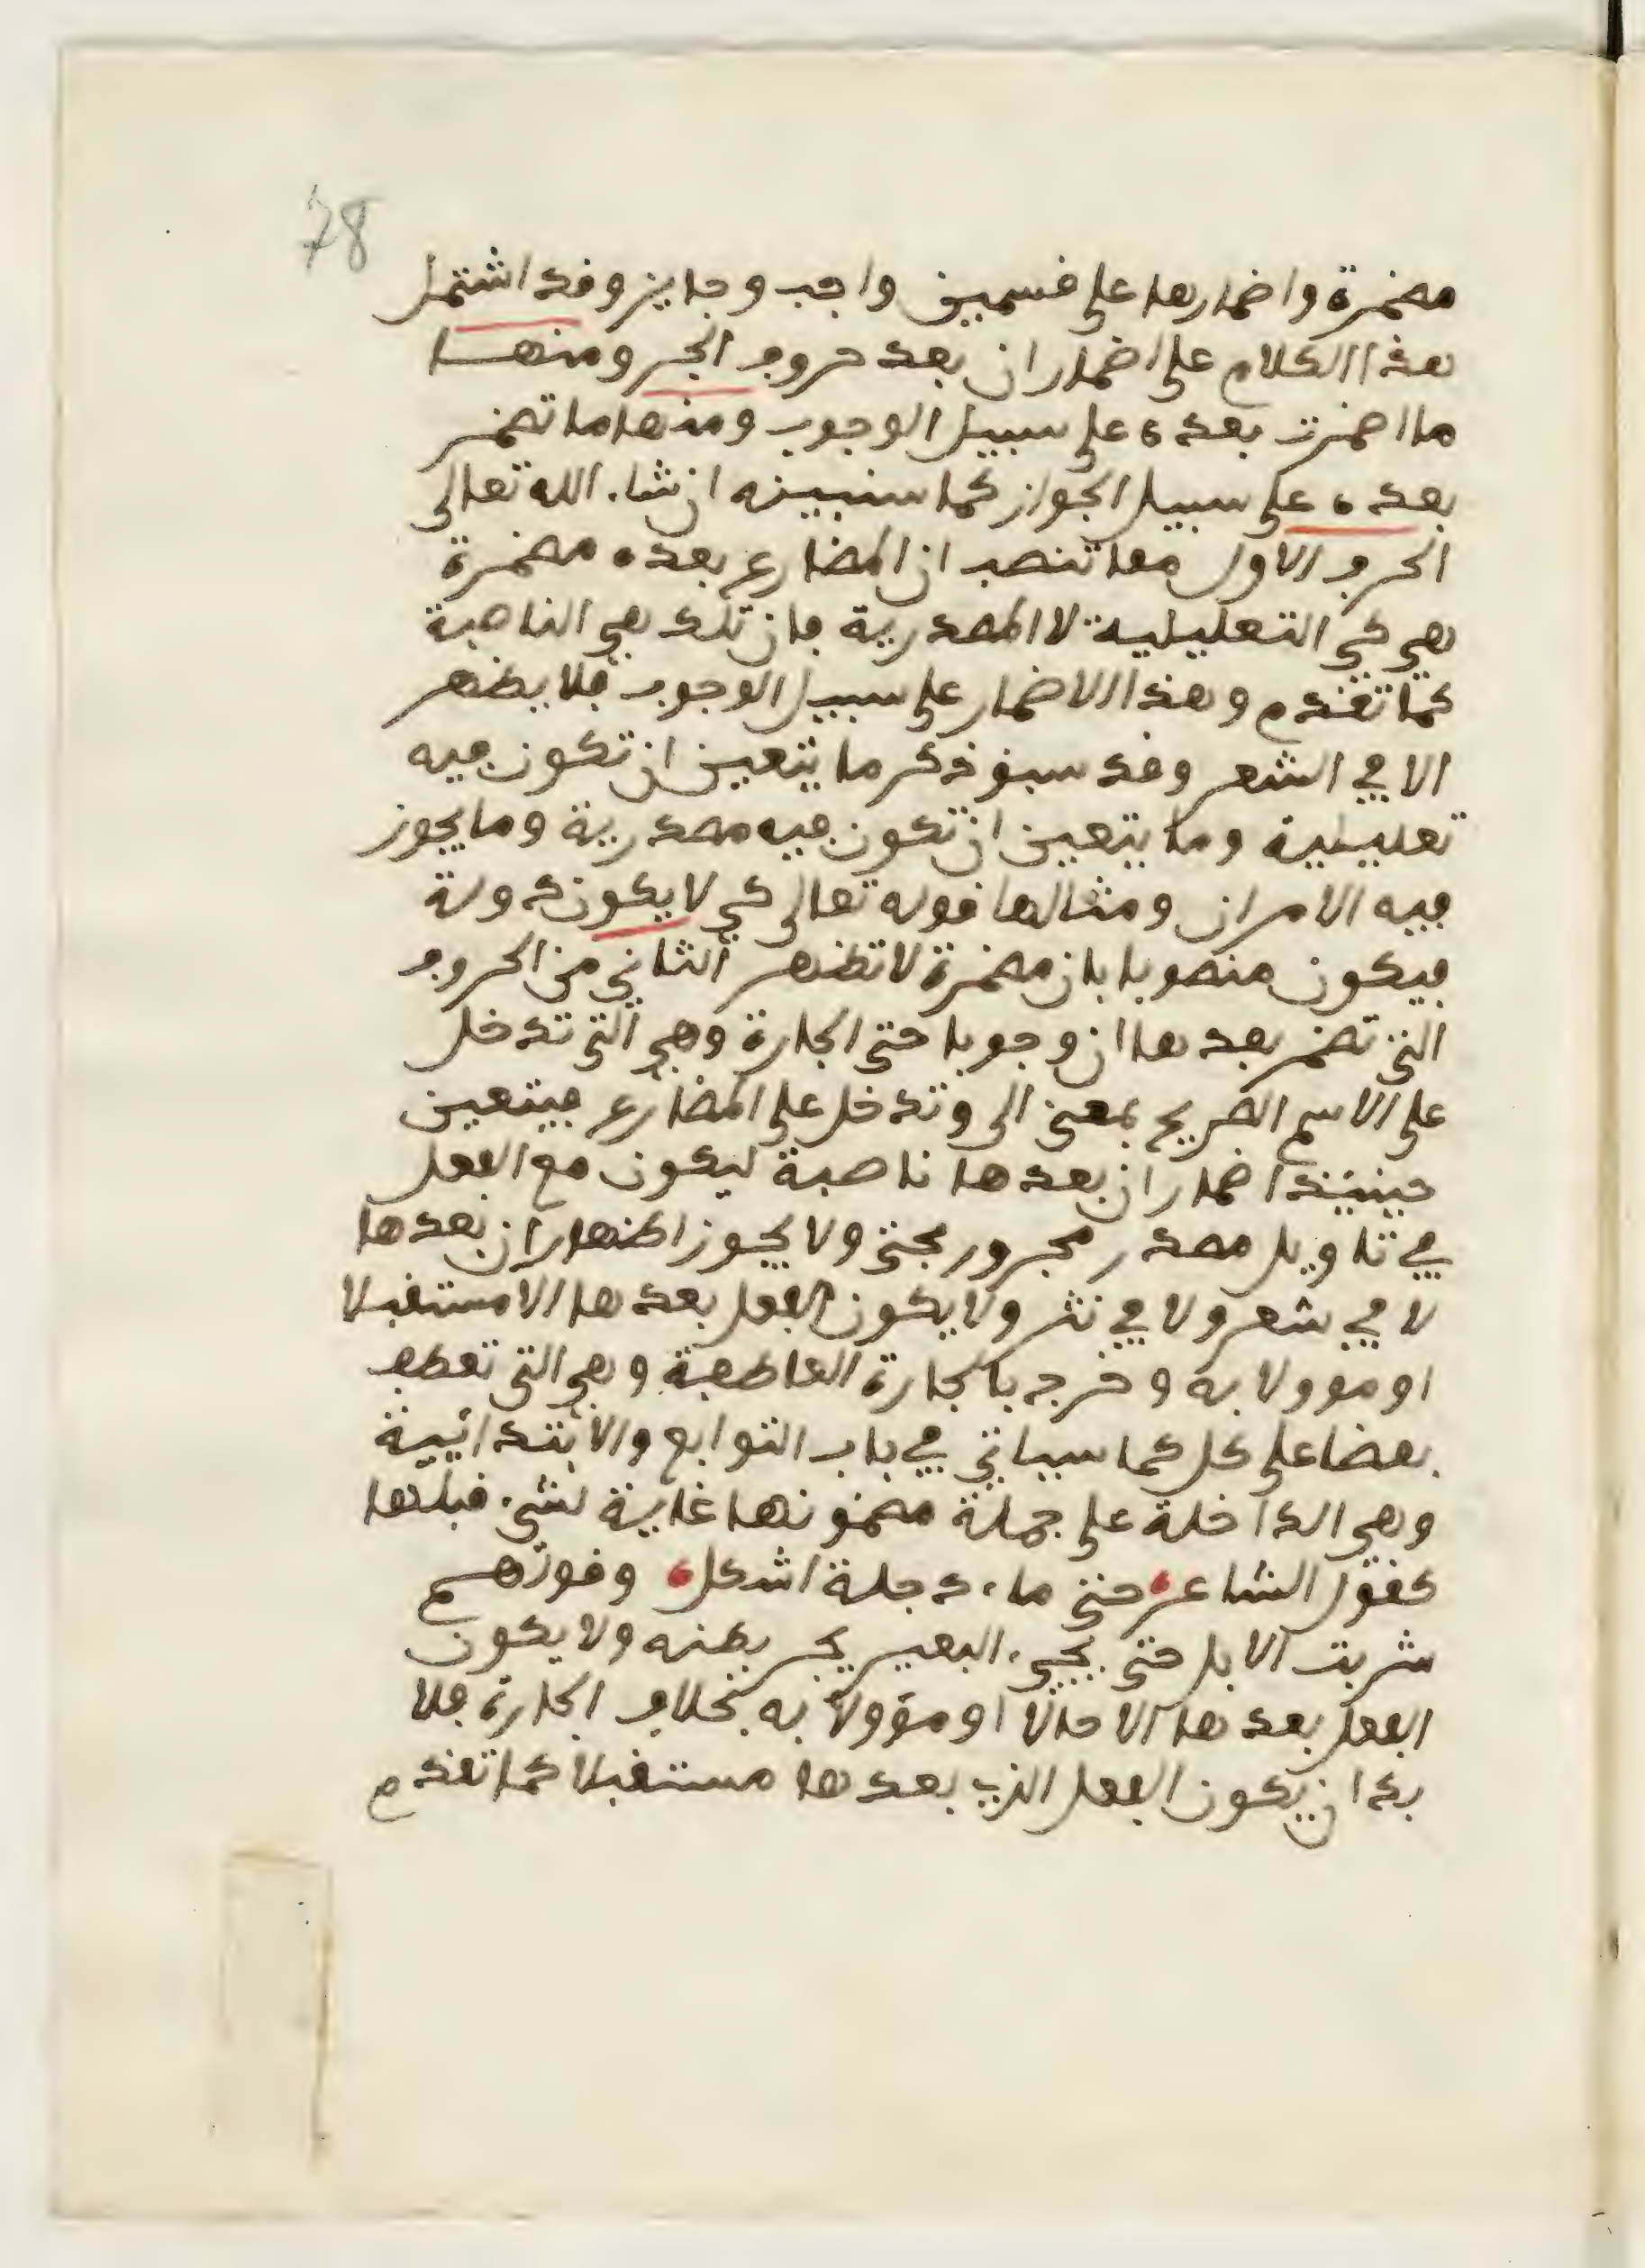 78
مضمرة واضمارها على قسمين واجب وجايز وقد اشتمل
هذا الكلام على اضمار ان بعد حروف الجر ومنها
ما اضمرت بعده على سبيل الوجوب ومنها ما تضمر
بعده على سبيل الجواز كما سنبينه ان شاء الله تعالى
الحرف الاول مما تنصب ان المضارع بعده مضمرة
هي كي التعليلية لا المصدرية فان تلك هي الناصبة
كما تقدم وهذا الاضمار على سبيل الوجوب فلا يظهر
الا في الشعر وقد سبق ذكر ما يتعين ان تكون فيه
تعليلية وما يتعين ان تكون فيه مصدرية وما يجوز
فيه الامران ومثالها قوله تعالى كي لا يكون دولة
فيكون منصوبا بان مضمرة لا تظهر الثاني من الحروف
التي تضمر بعدها ان وجوبا حتى الجارة وهي التي تدخل
على الاسم الصريح بمعنى الى وتدخل على المضارع فيتعين
حينيئذ اضمار ان بعدها ناصبة ليكون مع الفعل
في تاويل مصدر مجرور بحتى ولا يجوز اظهار ان بعدها
لا في شعر ولا في نثر ولا يكون الفعل بعدها الا مستقبلا
او موولا به وخرج بالجارة العاطفة وهي التي تعطف
بعضا على كل كما سياتي في باب التوابع والابتدائية
وهي الداخلة على جملة مضمونها غاية لشيء قبلها
كقول الشاعر حتى ماء دجلة اشكل وقولهم
شربت الابل حتى يجيء البعير يجر بطنه ولا يكون
الفعل بعدها الا حالا او مؤولا به بخلاف الجارة فلا
بد ان يكون الفعل الذي بعدها مستقبلا كما تقدم